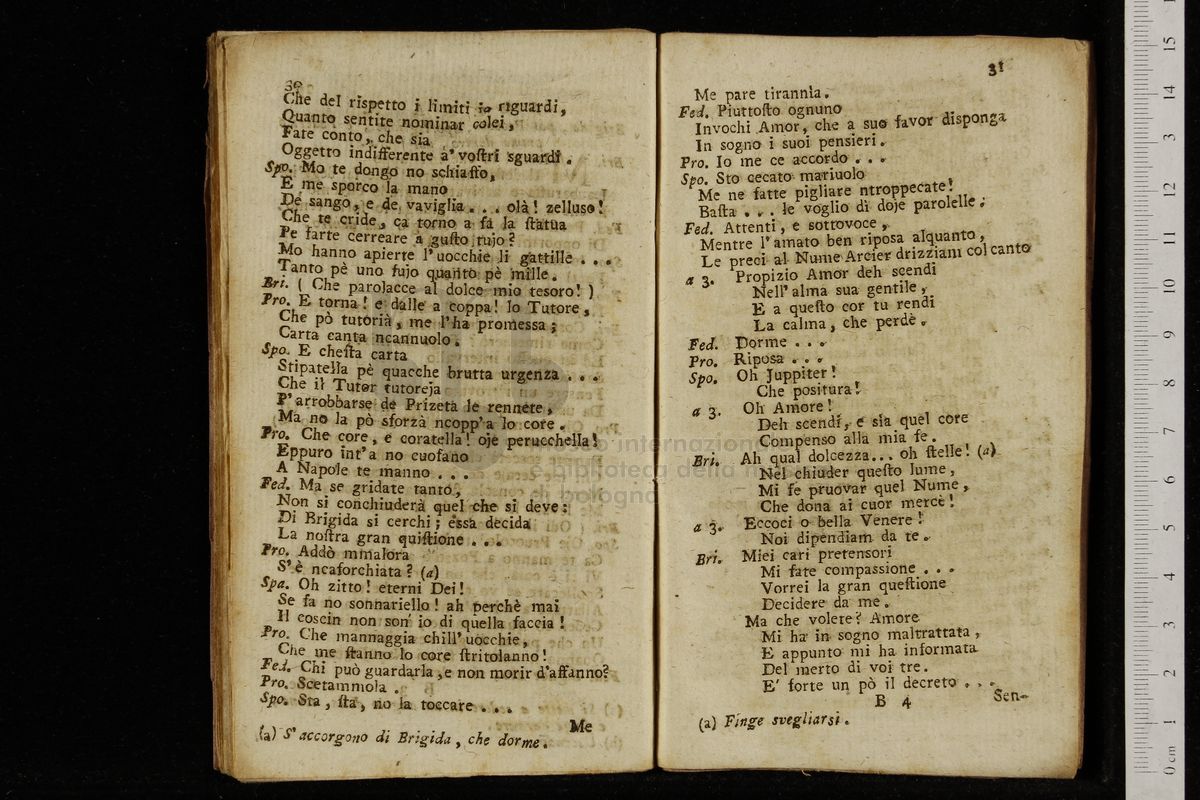 30
Che del rispetto i limiti io riguardi,
Quanto sentite nominar colei,
Fate conto, che sia
Oggetto indifferente a' voſtri sguardi.
Spo. Mo te dongo no schiaffo,
E me sporco la mano
De sango, e de vaviglia... olà! zelluso!
Che te cride, ca torno a fa la ſtatua
Pe farte cerreare a guſto tujo?
Mo hanno apierte l'uocchie li gattille...
Tanto pè uno fujo quanto pè mille.
Bri. ( Che parolacce al dolce mio tesoro! )
Pro. E torna! e dalle a coppa! lo Tutore,
Che pò tutorià, me l'ha promessa;
Carta canta ncannuolo.
Spo. E cheſta carta
Stipatella pè quacche brutta urgenza...
Che il Tutor tutoreja
P'arrobbarse de Prizeta le rennete,
Ma no la pò sforzà ncopp'a lo core.
Pro. Che core, e coratella! oje perucchella!
Eppuro int'a no cuofano
A Napole te manno...
Fed. Ma se gridate tanto,
Non si conchiuderà quel che si deve:
Di Brigida si cerchi; essa decida
La noſtra gran quiſtione...
Pro. Addò mmalora
S'è ncaforchiata? (a)
Spa. Oh zitto! eterni Dei!
Se fa no sonnariello! ah perchè mai
Il coscin non son' io di quella faccia!
Pro. Che mannaggia chill' uocchie,
Che me ſtanno lo core ſtritolanno!
Fed. Chi può guardarla, e non morir d'affanno?
Pro. Scetammola.
Spo. Sta, ſta, no la toccare...
Me
(a) S'accorgono di Brigida, che dorme.
31
Me pare tirannìa.
Fed. Piuttoſto ognuno
Invochi Amor, che a suo favor disponga
In sogno i suoi pensieri.
Pro. Io me ce accordo...
Spo. Sto cecato mariuolo
Me ne fatte pigliare ntroppecate!
Baſta... le voglio dì doje parolelle.
Fed. Attenti, e sottovoce,
Mentre l'amato ben riposa alquanto,
Le preci al Nume Arcier drizziam col canto
a 3. Propizio Amor deh scendi
Nell' alma sua gentile,
E a queſto cor tu rendi
La calma, che perdè.
Fed. Dorme...
Pro. Riposa...
Spo. Oh Juppiter!
Che positura!
a 3. Oh Amore!
Deh scendi, e sia quel core
Compenso alla mia fe.
Bri. Ah qual dolcezza... oh ſtelle! (a)
Nel chiuder queſto lume,
Mi fe pruovar quel Nume,
Che dona ai cuor mercè!
a 3. Eccoci o bella Venere!
Noi dipendiam da te.
Bri. Miei cari pretensori
Mi fate compassione...
Vorrei la gran queſtione
Decidere da me.
Ma che volete? Amore
Mi ha in sogno maltrattata,
E appunto mi ha informata
Del merto di voi tre.
E' forte un pò il decreto...
B 4
Sen-
(a) Finge svegliarsi.
museo internazionale
e biblioteca della musica
di bologna
0 cm 1 2 3 4 5 6 7 8 9 10 11 12 13 14 15